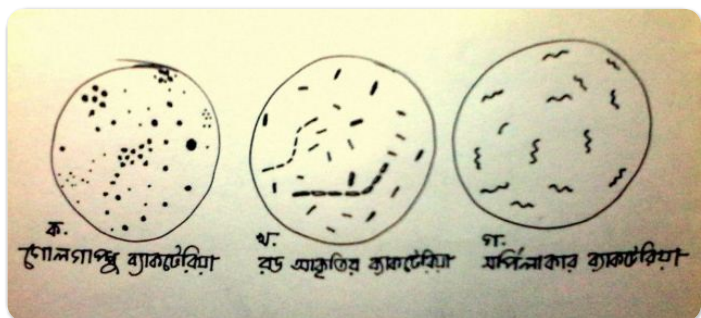 ক.
গোলগাপ্পু ব্যাকটেরিয়া
খ.
রড আকৃতির ব্যাকটেরিয়া
গ.
সর্পিলাকার ব্যাকটেরিয়া